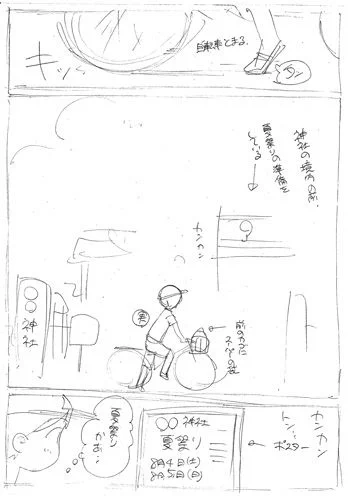 キッ
自転車とまる。
タン
神社の境内の前。
夏祭りの準備を
している
カンカン
〇〇
神社
前のカゴに
スーパーの袋
カンカン
トントン
ポスター
〇〇神社
夏祭り
8月4日(土)
8月5日(日)
夏祭り
かぁ…